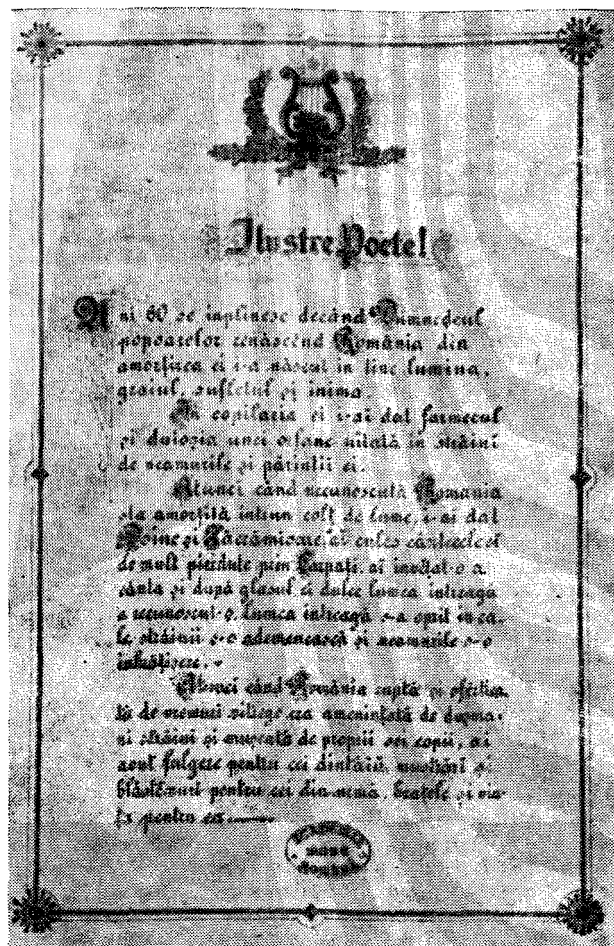 Ilustre Poete!
Ani 60 se implinesc decând Dumnedeul
popoarelor renăscênd România din
amorțirea ei i-a născut in tine lumina,
graiul, sufletul și inima.
În copilaria ei i-ai dat farmecul
și duioșia unei orfane uitată in străini
de neamurile și părinții ei.
Atunci când necunoscută România
sta amorțită intrun colț de lume, i-ai dat
Doine și Lăcrămioare ai cules cântecele ei
de mult pierdute prin Carpați, ai invățat-o a
cânta și după glasul ei dulce lumea intreagă
a recunoscut-o. Lumea intreagă s-a oprit in ca-
le, străinii s-o ademenească și neamurile s-o
imbrățișeze.
Atunci când România ruptă și
de vremuri vitrege era amenințată de dușma-
ni străini și mușcată de propiii sei copii, ai
avut fulgere pentru cei dintăiă, mustrări și
blăstămuri pentru cei din urmă,
pentru ea